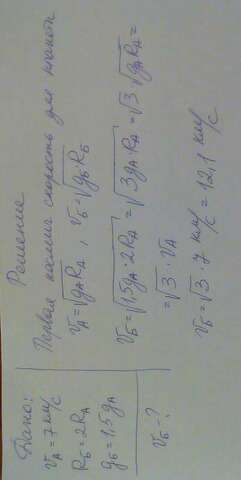 Дано:
v_A = 7 км/с
R_Б = 2R_A
g_Б = 1,5 g_A
v_Б - ?
Решение
Первая космич скорость для планет
v_A = √(g_A R_A) , v_Б = √(g_Б · R_Б)
v_Б = √(1,5g_A · 2R_A) = √(3g_A · R_A) = √3 √(g_A R_A) =
= √3 · v_A
v_Б = √3 · 7 км/с = 12,1 км/с